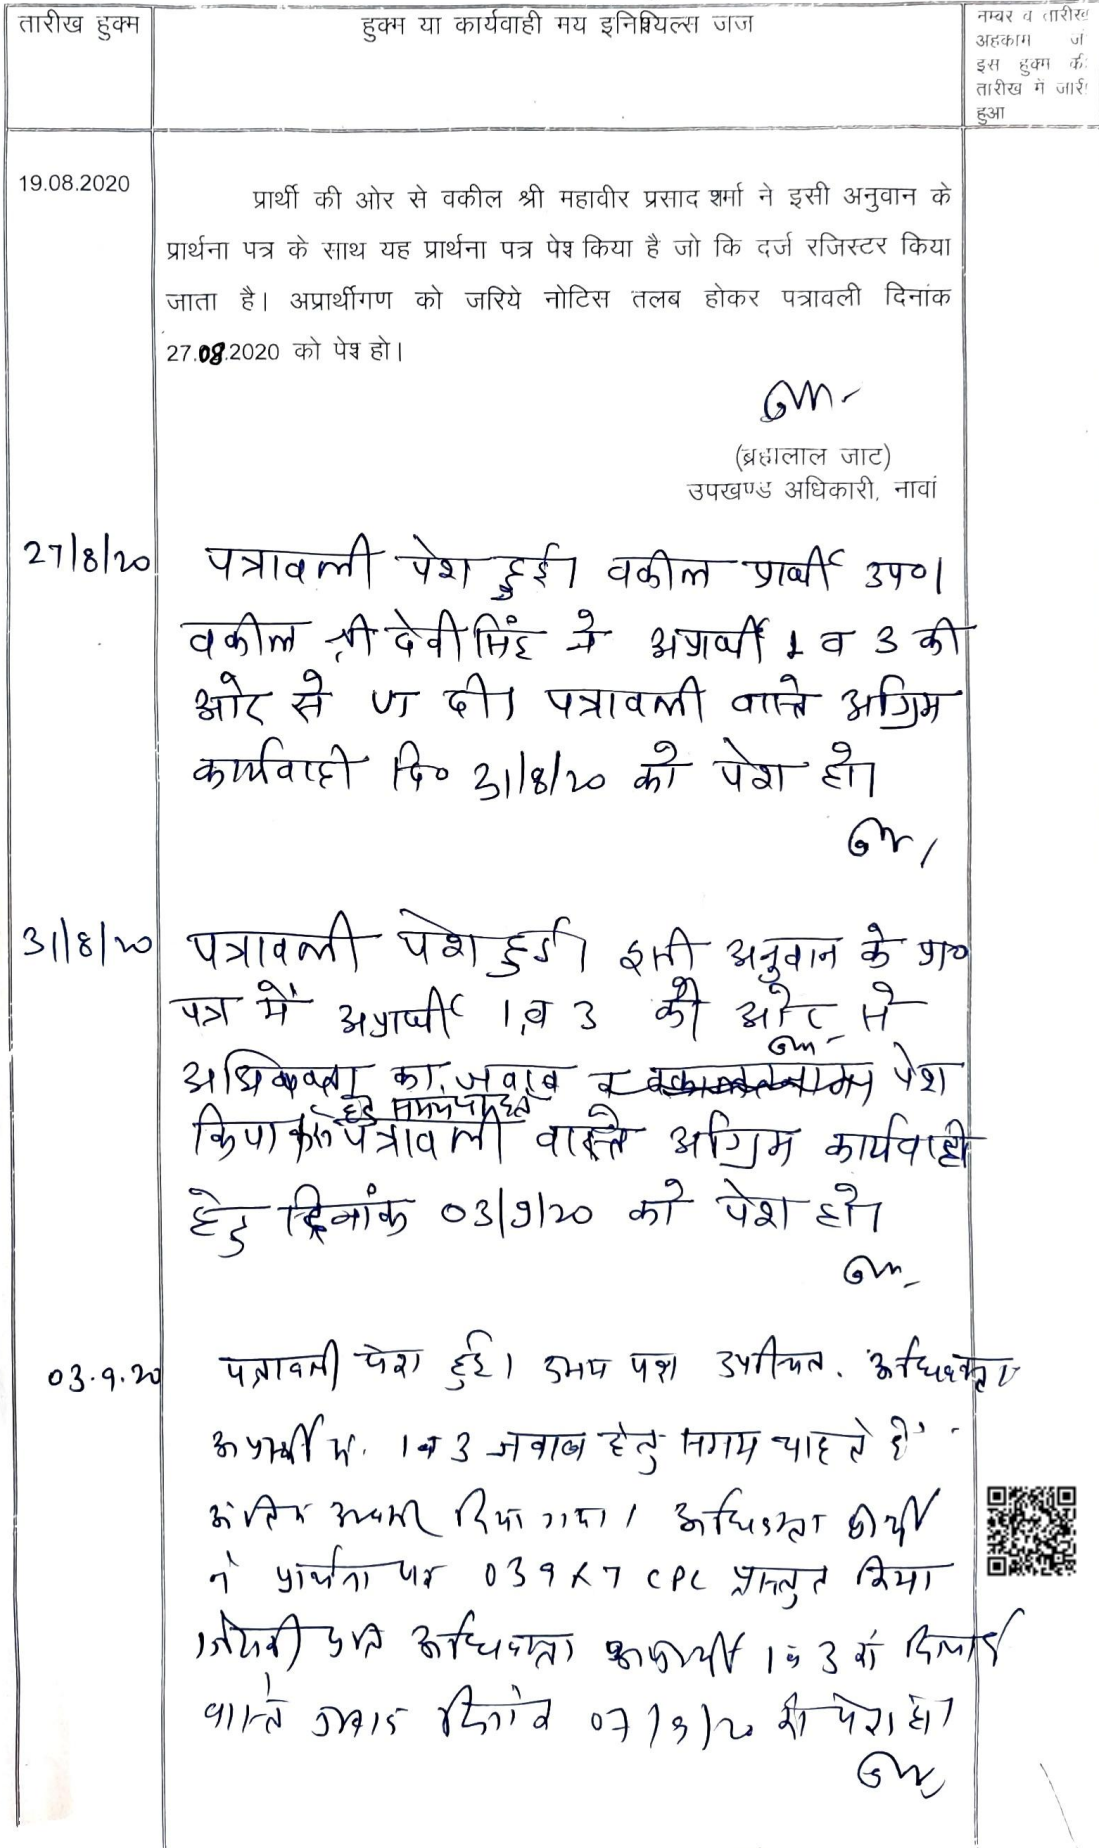 तारीख हुक्म
हुक्म या कार्यवाही मय इनिश्यिल्स जज
नम्बर व तारीख
अहकाम जो
इस हुक्म की
तारीख में जारी
हुआ
19.08.2020
प्रार्थी की ओर से वकील श्री महावीर प्रसाद शर्मा ने इसी अनुवान के
प्रार्थना पत्र के साथ यह प्रार्थना पत्र पेश किया है जो कि दर्ज रजिस्टर किया
जाता है। अप्रार्थीगण को जरिये नोटिस तलब होकर पत्रावली दिनांक
27.08.2020 को पेश हो।
(ब्रहालाल जाट)
उपखण्ड अधिकारी, नावां
27/8/20
पत्रावली पेश हुई। वकील प्रार्थी उप०।
वकील श्री देवीसिंह ने अप्रार्थी 1 व 3 की
ओर से VT दी। पत्रावली वास्ते अग्रिम
कार्यवाही दि० 31/8/20 को पेश हो।
31/8/20
पत्रावली पेश हुई। इसी अनुवान के प्रा०
पत्र में अप्रार्थी 1, व 3 की ओर से
अधिवक्ता का जवाब व वकालतनामा पेश
हेतु समय चाहते
किया पत्रावली वास्ते अग्रिम कार्यवाही
हेतु दिनांक 03/9/20 को पेश हो।
03.9.20
पत्रावली पेश हुई। उभय पक्ष उपस्थित. अधिवक्ता
अप्रार्थी सं. 1 व 3 जवाब हेतु समय चाहते हैं
अंतिम अवसर दिया गया। अधिवक्ता प्रार्थी
ने प्रार्थना पत्र 039 R7 CPC प्रस्तुत किया
जिसकी प्रति अधिवक्ता अप्रार्थी 1 व 3 को दिलाई
वास्ते जवाब दिनांक 07/9/20 को पेश हो।